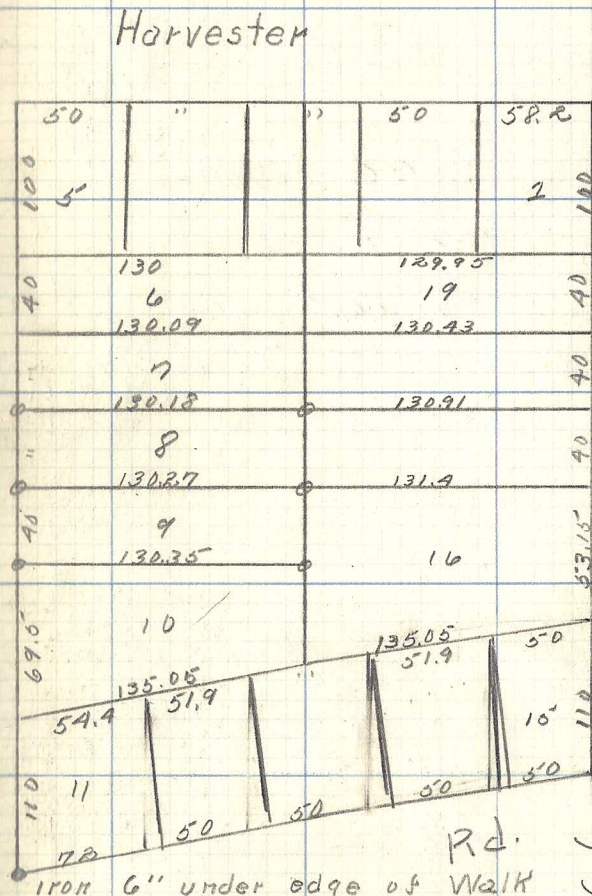 Harvester
50 " " 50 58.2
100 5 1 100
130 129.95
40 6 19 40
130.09 130.43
" 7 40
130.18 130.91
" 8 40
130.27 131.4
40 9 53.15
130.35 16
10
69.5 135.05 50
135.05 " 51.9
54.4 51.9
110 11 15 110
50 50 50 50
72 Rd.
iron 6" under edge of Walk